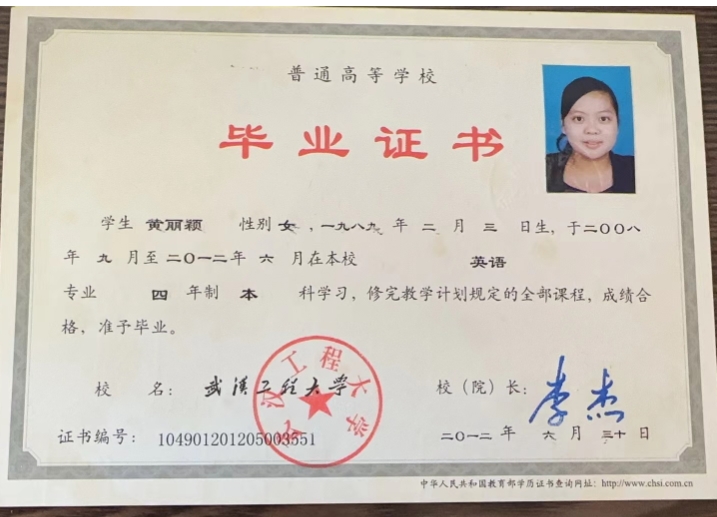 普通高等学校
毕业证书
学生 黄丽颖 性别 女，一九八九 年 二 月 三 日生，于二〇〇八
年 九 月至 二〇一二年 六 月在本校 英语
专业 四 年制 本 科学习，修完教学计划规定的全部课程，成绩合
格，准予毕业。
校 名： 武汉工程大学 校（院）长： 李杰
证书编号： 104901201205003551 二〇一二 年 六 月 三十 日
武汉工程大学
中华人民共和国教育部学历证书查询网址：http://www.chsi.com.cn